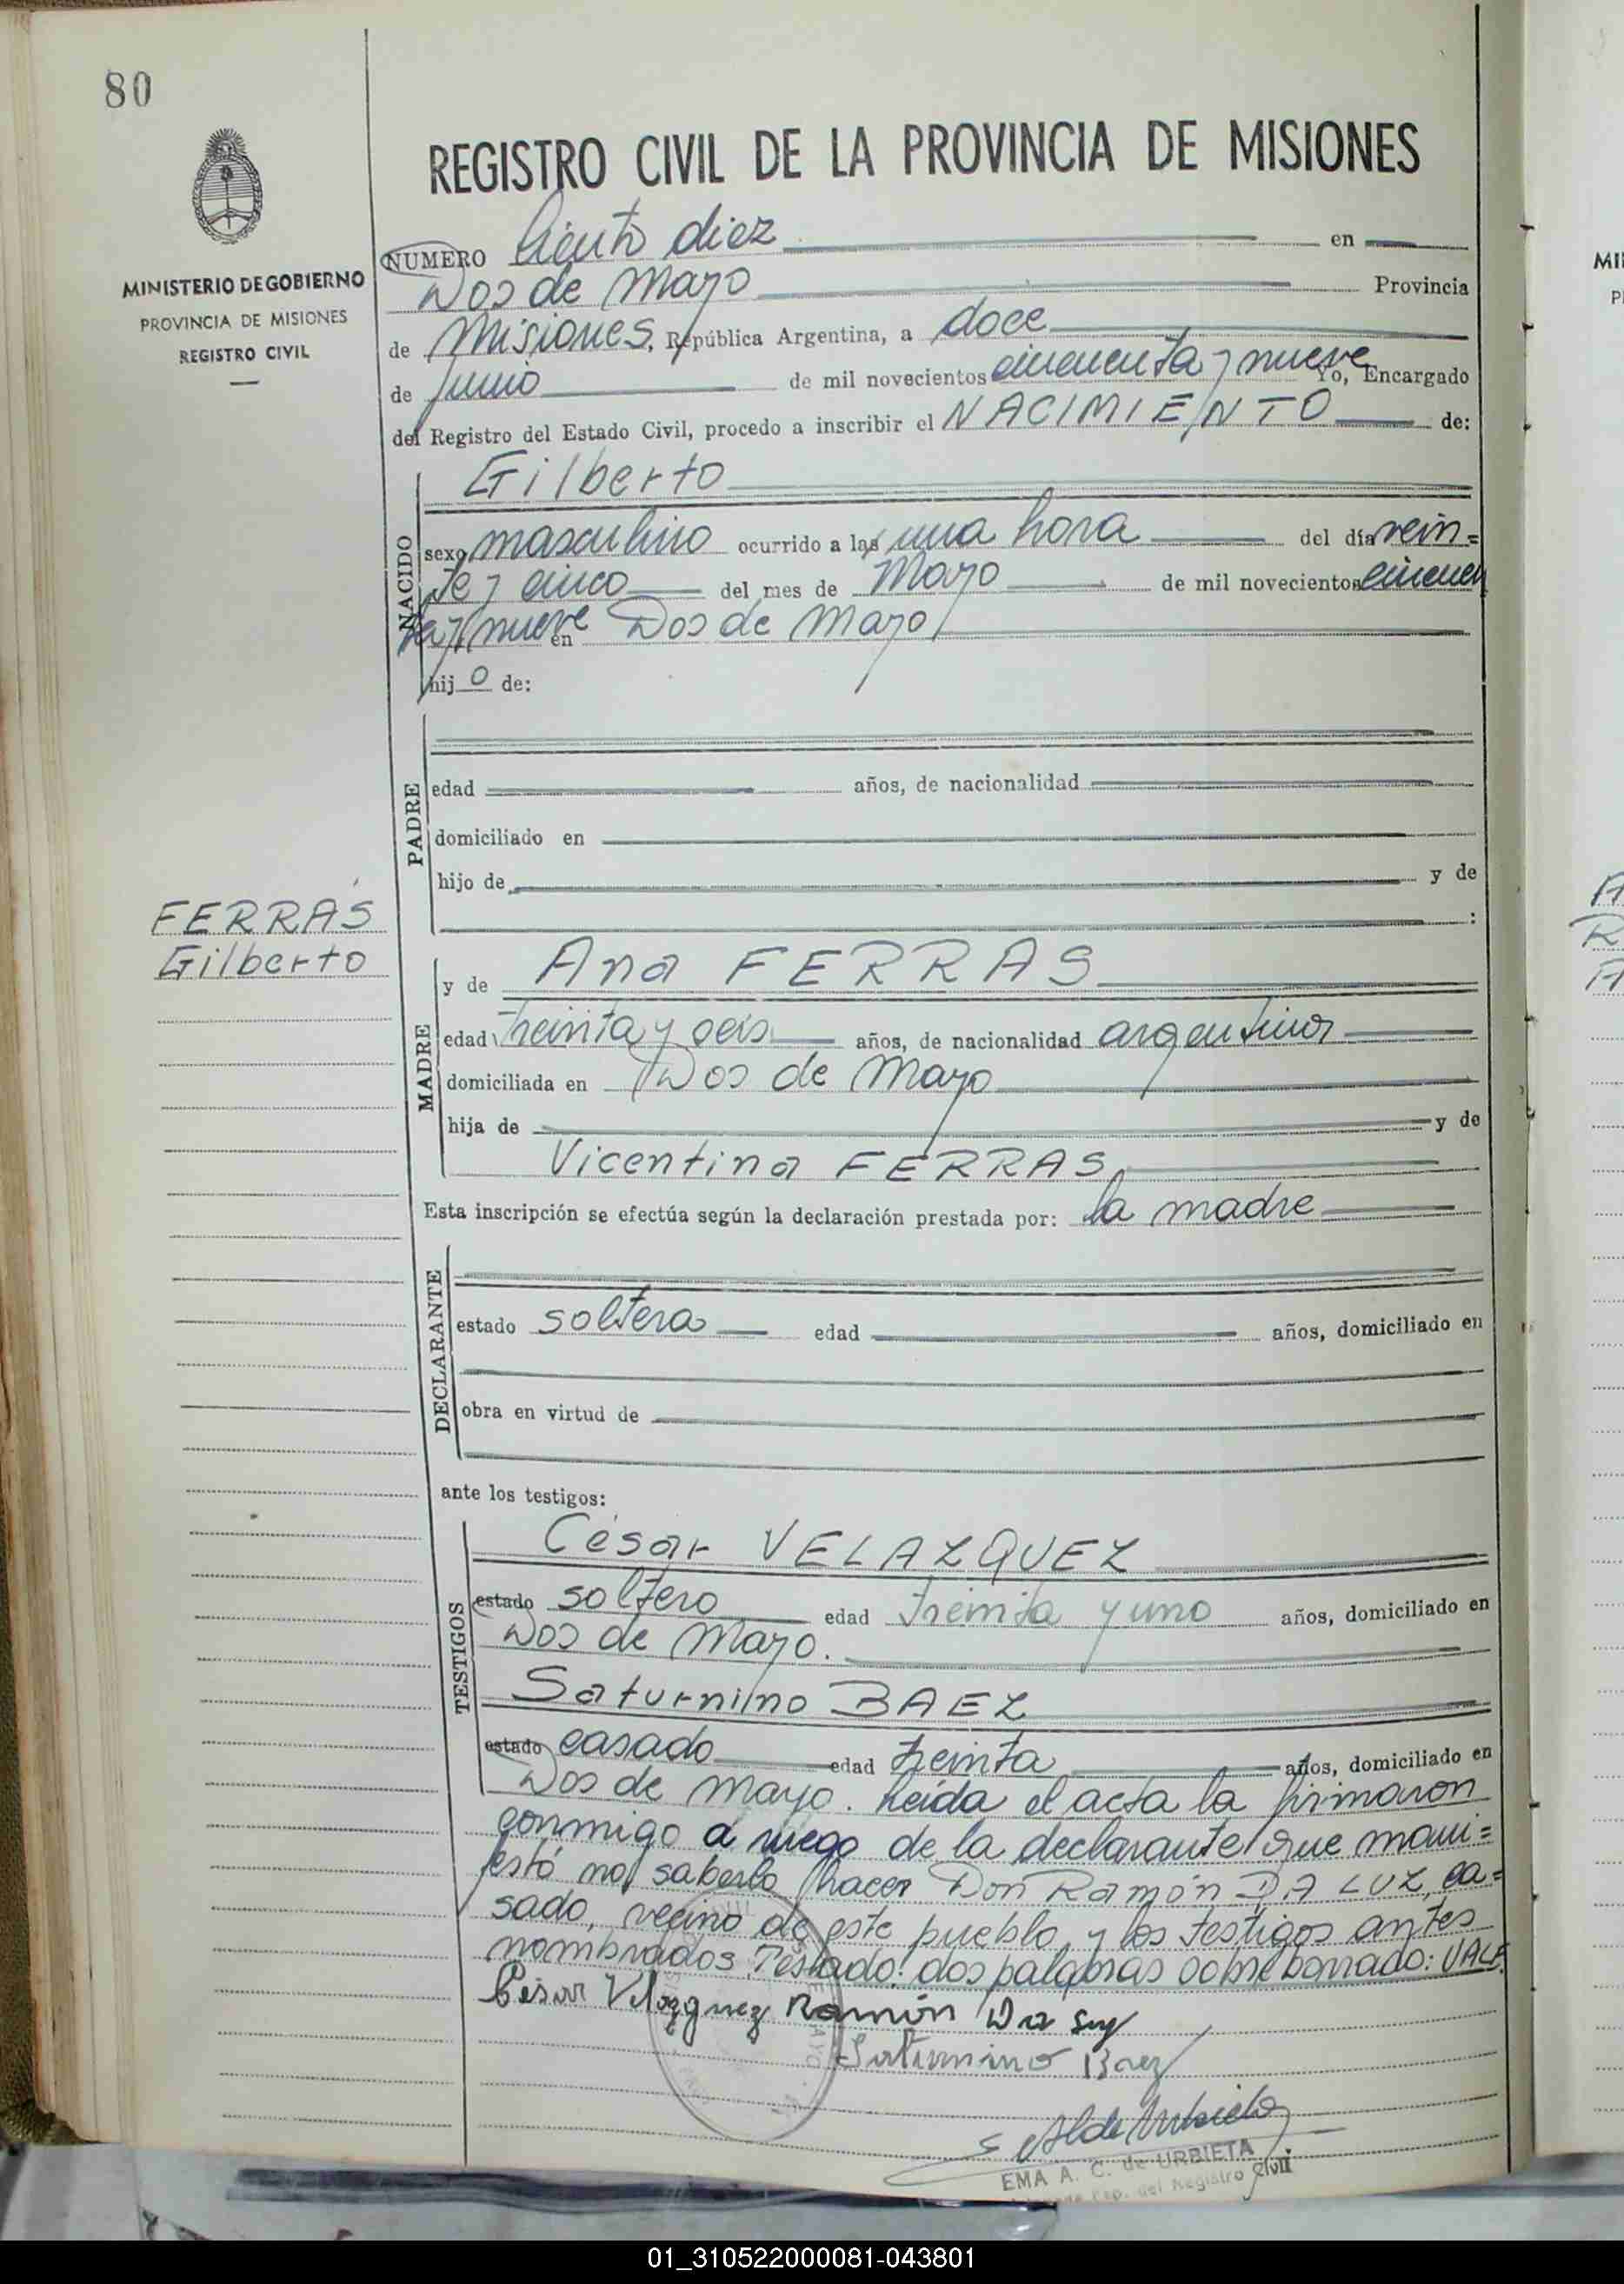 80
MINISTERIO DE GOBIERNO
PROVINCIA DE MISIONES
REGISTRO CIVIL
REGISTRO CIVIL DE LA PROVINCIA DE MISIONES
NUMERO Ciento diez en
Dos de Mayo Provincia
de Misiones, República Argentina, a doce
de Junio de mil novecientos cincuenta y nueve Yo, Encargado
del Registro del Estado Civil, procedo a inscribir el NACIMIENTO de:
NACIDO
Gilberto
sexo masculino ocurrido a las una hora del día vein=
te y cinco del mes de Mayo de mil novecientos cincuen
ta y nueve en Dos de Mayo
hijo de:
PADRE
edad años, de nacionalidad
domiciliado en
hijo de y de
:
FERRAS
Gilberto
MADRE
y de Ana FERRAS
edad treinta y seis años, de nacionalidad argentina
domiciliada en Dos de Mayo
hija de y de
Vicentina FERRAS
Esta inscripción se efectúa según la declaración prestada por: la madre
DECLARANTE
estado soltera edad años, domiciliado en
obra en virtud de
ante los testigos:
TESTIGOS
César VELAZQUEZ
estado soltero edad treinta y uno años, domiciliado en
Dos de Mayo.
Saturnino BAEZ
estado casado edad treinta años, domiciliado en
Dos de Mayo. Leída el acta la firmaron
conmigo a ruego de la declarante que mani=
festó no saberlo hacer Don Ramón DA LUZ, ca=
sado, vecino de este pueblo y los testigos antes
nombrados. Testado: dos palabras sobre borrado: VALE.
César Velazquez Ramón Da
Saturnino Baez
EMA A. C. de URBIETA
del Registro Civil
01_310522000081-043801